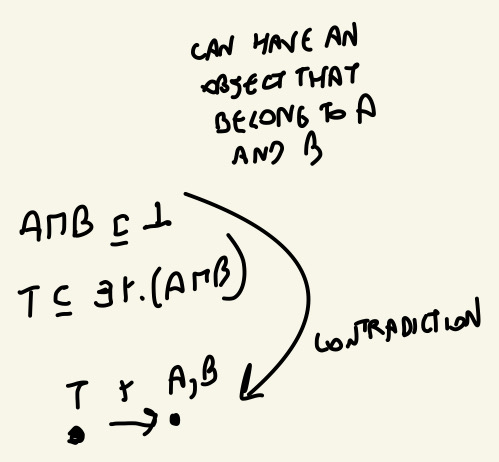 CAN HAVE AN
OBJECT THAT
BELONG TO A
AND B
A⊓B ⊑ ⊥
⊤ ⊑ ∃r.(A⊓B)
CONTRADICTION
⊤ r A,B